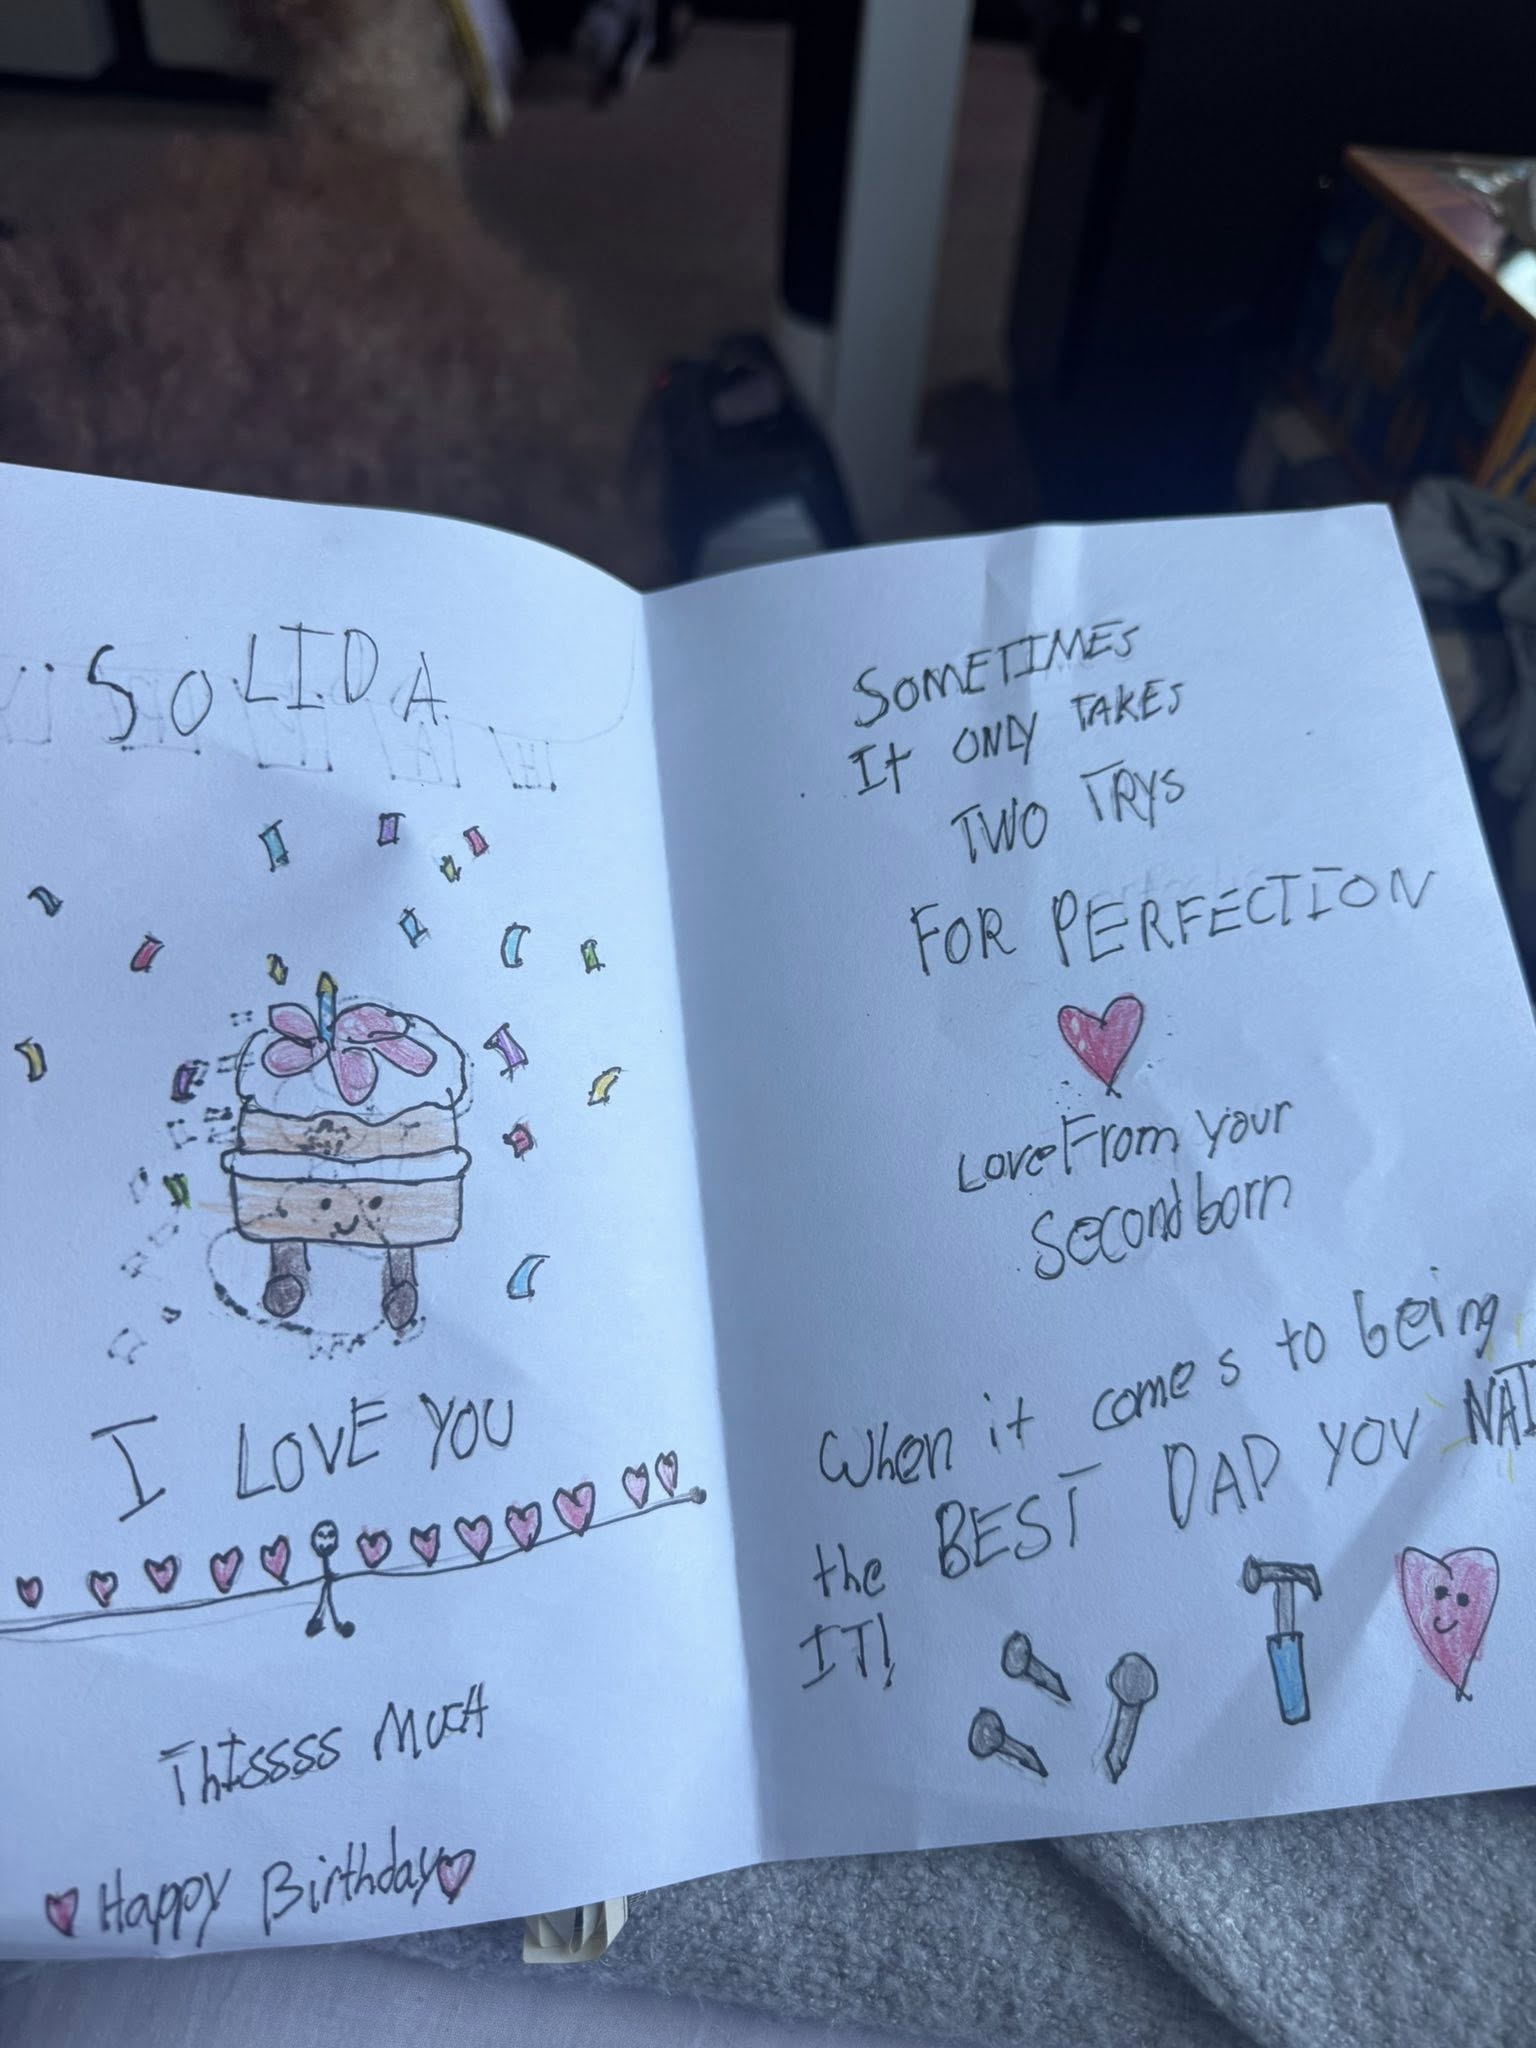 SOLIDA
I LOVE YOU
ThIssss MucH
Happy Birthday
SOMETIMES
It ONLY TAKES
TWO TRYS
FOR PERFECTION
Love From your
Second born
When it comes to being
the BEST DAD YOU NAI
IT!